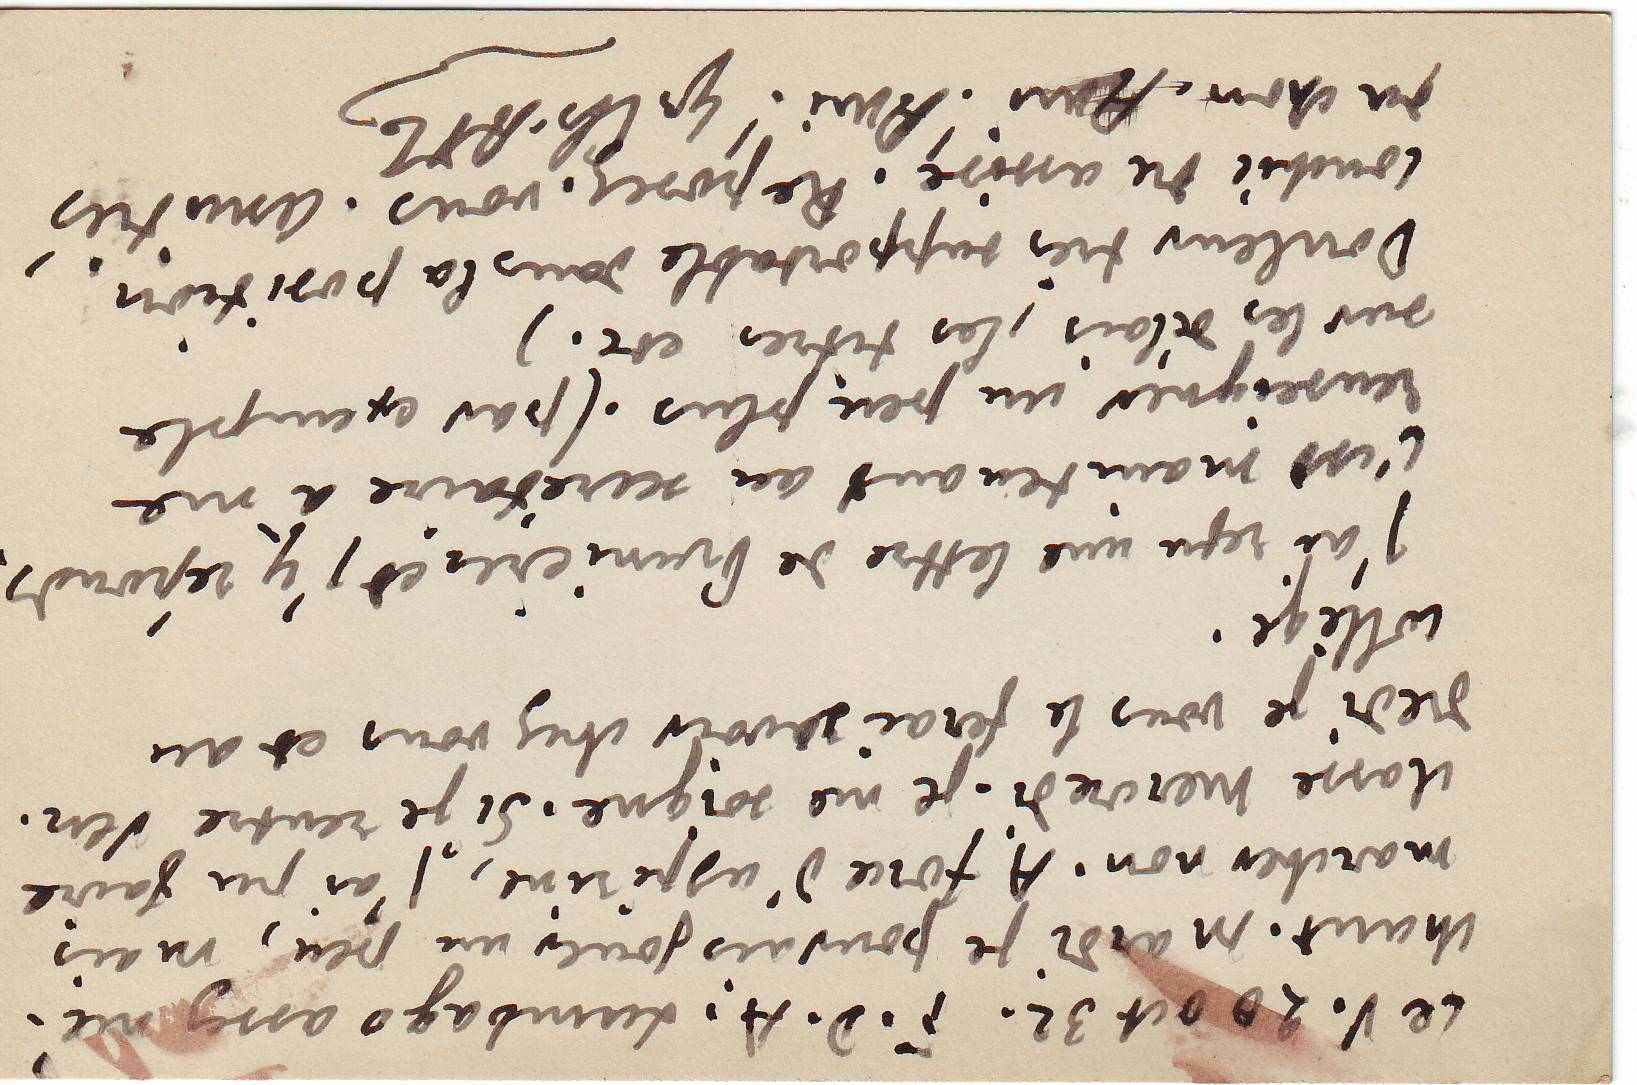 Le V. 20 oct 32. F. D. A. Lumbago assez mé-
chant. Mardi je pouvais jouer un peu, mais
marcher non. A force d'aspirine, j'ai pu faire
classe mercredi. Je me soigne. Si je rentre ven-
dredi je vous le ferai savoir chez vous et au
collège.
J'ai reçu une lettre de Prunières et j'y réponds,
C'est maintenant au secrétaire à me
renseigner un peu plus. (par exemple
sur les délais, les titres etc.)
Douleur très supportable dans la position
couchée ou assise. Reposez-vous.